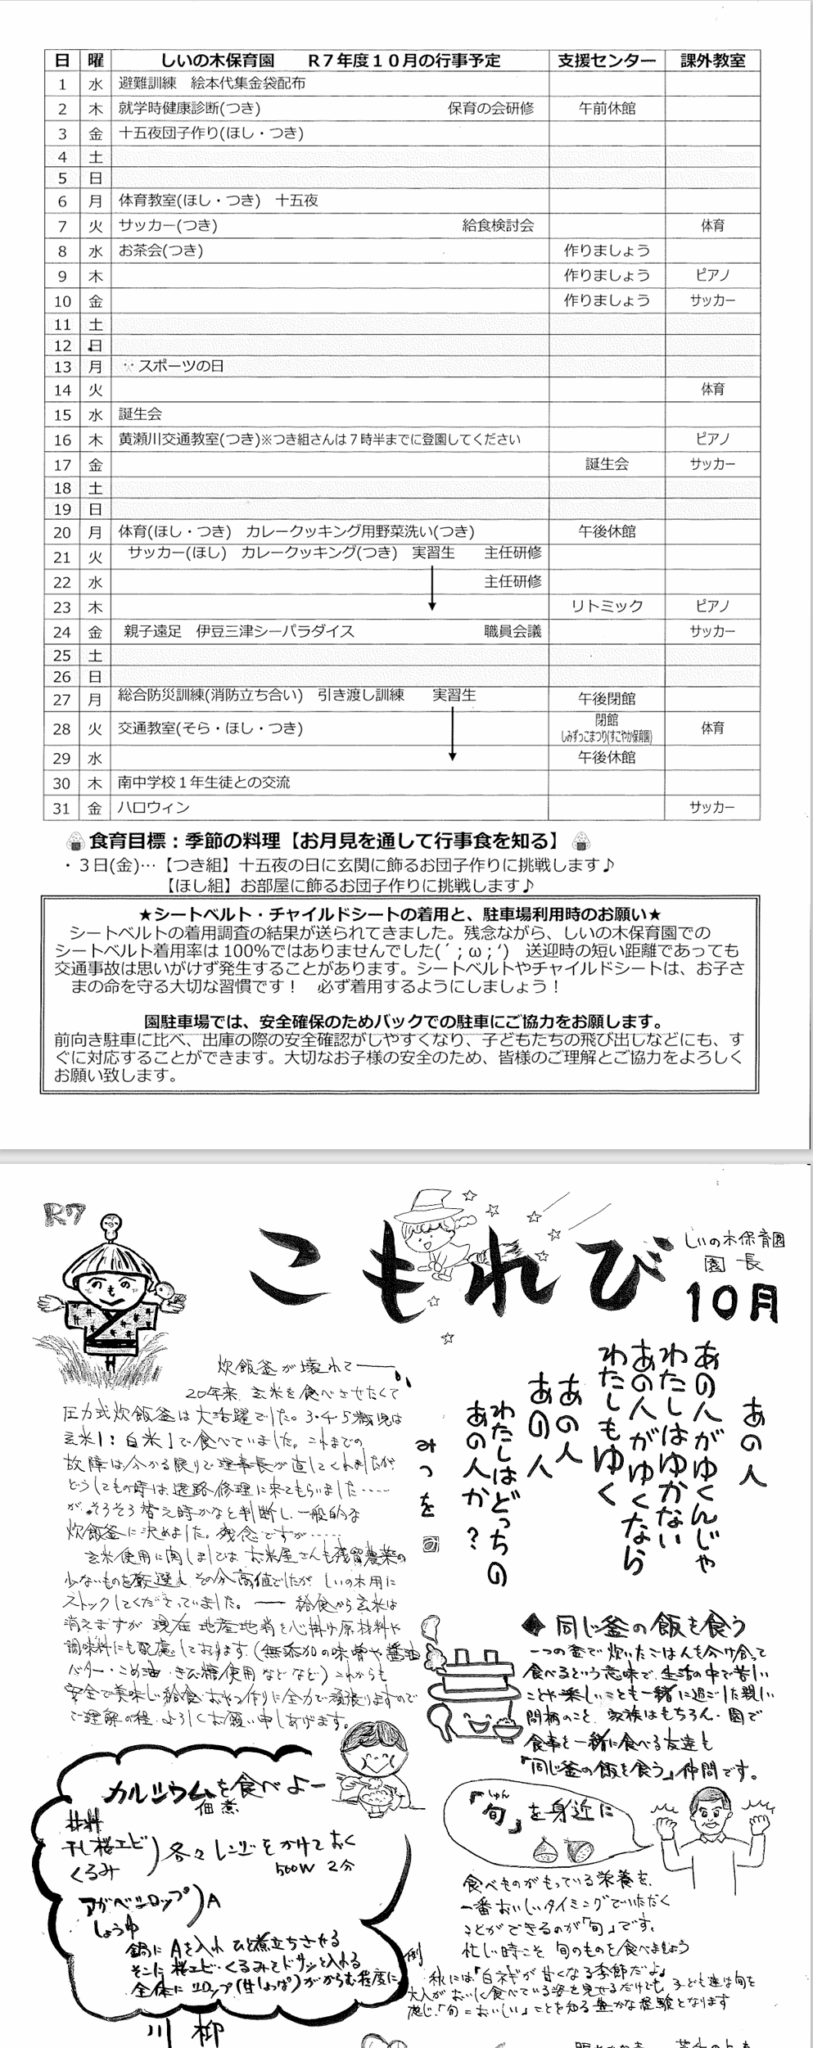 日 曜 しいの木保育園 R7年度10月の行事予定 支援センター 課外教室
1 水 避難訓練 絵本代集金袋配布
2 木 就学時健康診断(つき) 保育の会研修 午前休館
3 金 十五夜団子作り(ほし・つき)
4 土
5 日
6 月 体育教室(ほし・つき) 十五夜
7 火 サッカー(つき) 給食検討会 体育
8 水 お茶会(つき) 作りましょう
9 木 作りましょう ピアノ
10 金 作りましょう サッカー
11 土
12 日
13 月 スポーツの日
14 火 体育
15 水 誕生会
16 木 黄瀬川交通教室(つき)※つき組さんは7時半までに登園してください ピアノ
17 金 誕生会 サッカー
18 土
19 日
20 月 体育(ほし・つき) カレークッキング用野菜洗い(つき) 午後休館
21 火 サッカー(ほし) カレークッキング(つき) 実習生 主任研修
22 水 主任研修
23 木 リトミック ピアノ
24 金 親子遠足 伊豆三津シーパラダイス 職員会議 サッカー
25 土
26 日
27 月 総合防災訓練(消防立ち合い) 引き渡し訓練 実習生 午後閉館
28 火 交通教室(そら・ほし・つき) 閉館 しみずっこまつり(すこやか保育園) 体育
29 水 午後休館
30 木 南中学校1年生徒との交流
31 金 ハロウィン サッカー
食育目標:季節の料理【お月見を通して行事食を知る】
・3日(金)…【つき組】十五夜の日に玄関に飾るお団子作りに挑戦します♪
【ほし組】お部屋に飾るお団子作りに挑戦します♪
★シートベルト・チャイルドシートの着用と、駐車場利用時のお願い★
シートベルトの着用調査の結果が送られてきました。残念ながら、しいの木保育園での
シートベルト着用率は100%ではありませんでした(´;ω;‘) 送迎時の短い距離であっても
交通事故は思いがけず発生することがあります。シートベルトやチャイルドシートは、お子さ
まの命を守る大切な習慣です! 必ず着用するようにしましょう!
園駐車場では、安全確保のためバックでの駐車にご協力をお願します。
前向き駐車に比べ、出庫の際の安全確認がしやすくなり、子どもたちの飛び出しなどにも、す
ぐに対応することができます。大切なお子様の安全のため、皆様のご理解とご協力をよろしく
お願い致します。
R7
こもれび
しいの木保育園
園長
10月
あの人
あの人がゆくんじゃ
わたしはゆかない
あの人がゆくなら
わたしもゆく
あの人
あの人
わたしはどっちの
あの人か?
みつを
炊飯釜が壊れて
20年来、玄米を食べさせたくて
圧力式炊飯釜は大活躍でした。3・4・5歳児は
玄米1:白米1で食べていました。これまでの
故障は分かる限りで理事長が直してくれましたが
どうしてもの時は道路修理に来てもらいました……
が、そろそろ替え時かなと判断し、一般的な
炊飯釜に決めました。残念ですが……
玄米使用に関しましては、お米屋さんも残留農薬の
少ないものを厳選し、その分高値でしたが、しいの木用に
ストックしてくださっていました。― 給食から玄米は
消えますが、現在、地産地消を心掛け原材料や
調味料にも配慮しております。(無添加の味噌や醤油
バター・こめ油・きび糖使用などなど)これからも
安全で美味しい給食・おやつ作りに全力で頑張りますので
ご理解の程、よろしくお願い申しあげます。
◆ 同じ釜の飯を食う
一つの釜で炊いたごはんを分け合って
食べるという意味で、生活の中で苦しい
ことや楽しいことも一緒に過ごした親しい
間柄のこと。家族はもちろん、園で
食事を一緒に食べる友達も
「同じ釜の飯を食う」仲間です。
カルシウムを食べよー
佃煮
材料
干し桜エビ
くるみ
各々レンジをかけておく
500W 2分
アガベシロップ
しょうゆ
A
鍋にAを入れ ひと煮立ちさせる
そこに桜エビ・くるみをドサッと入れる
全体にシロップ(甘じょっぱ)がからむ程度に
川柳
「旬」を身近に
しゅん
食べものがもっている栄養を、
一番おいしいタイミングでいただく
ことができるのが「旬」です。
忙しい時こそ 旬のものを食べましょう
例 秋には「白ネギが甘くなる季節だよ」
大人がおいしく食べている姿を見せるだけでも、子ども達は旬を
感じ、「旬=おいしい」ことを知る豊かな経験となります